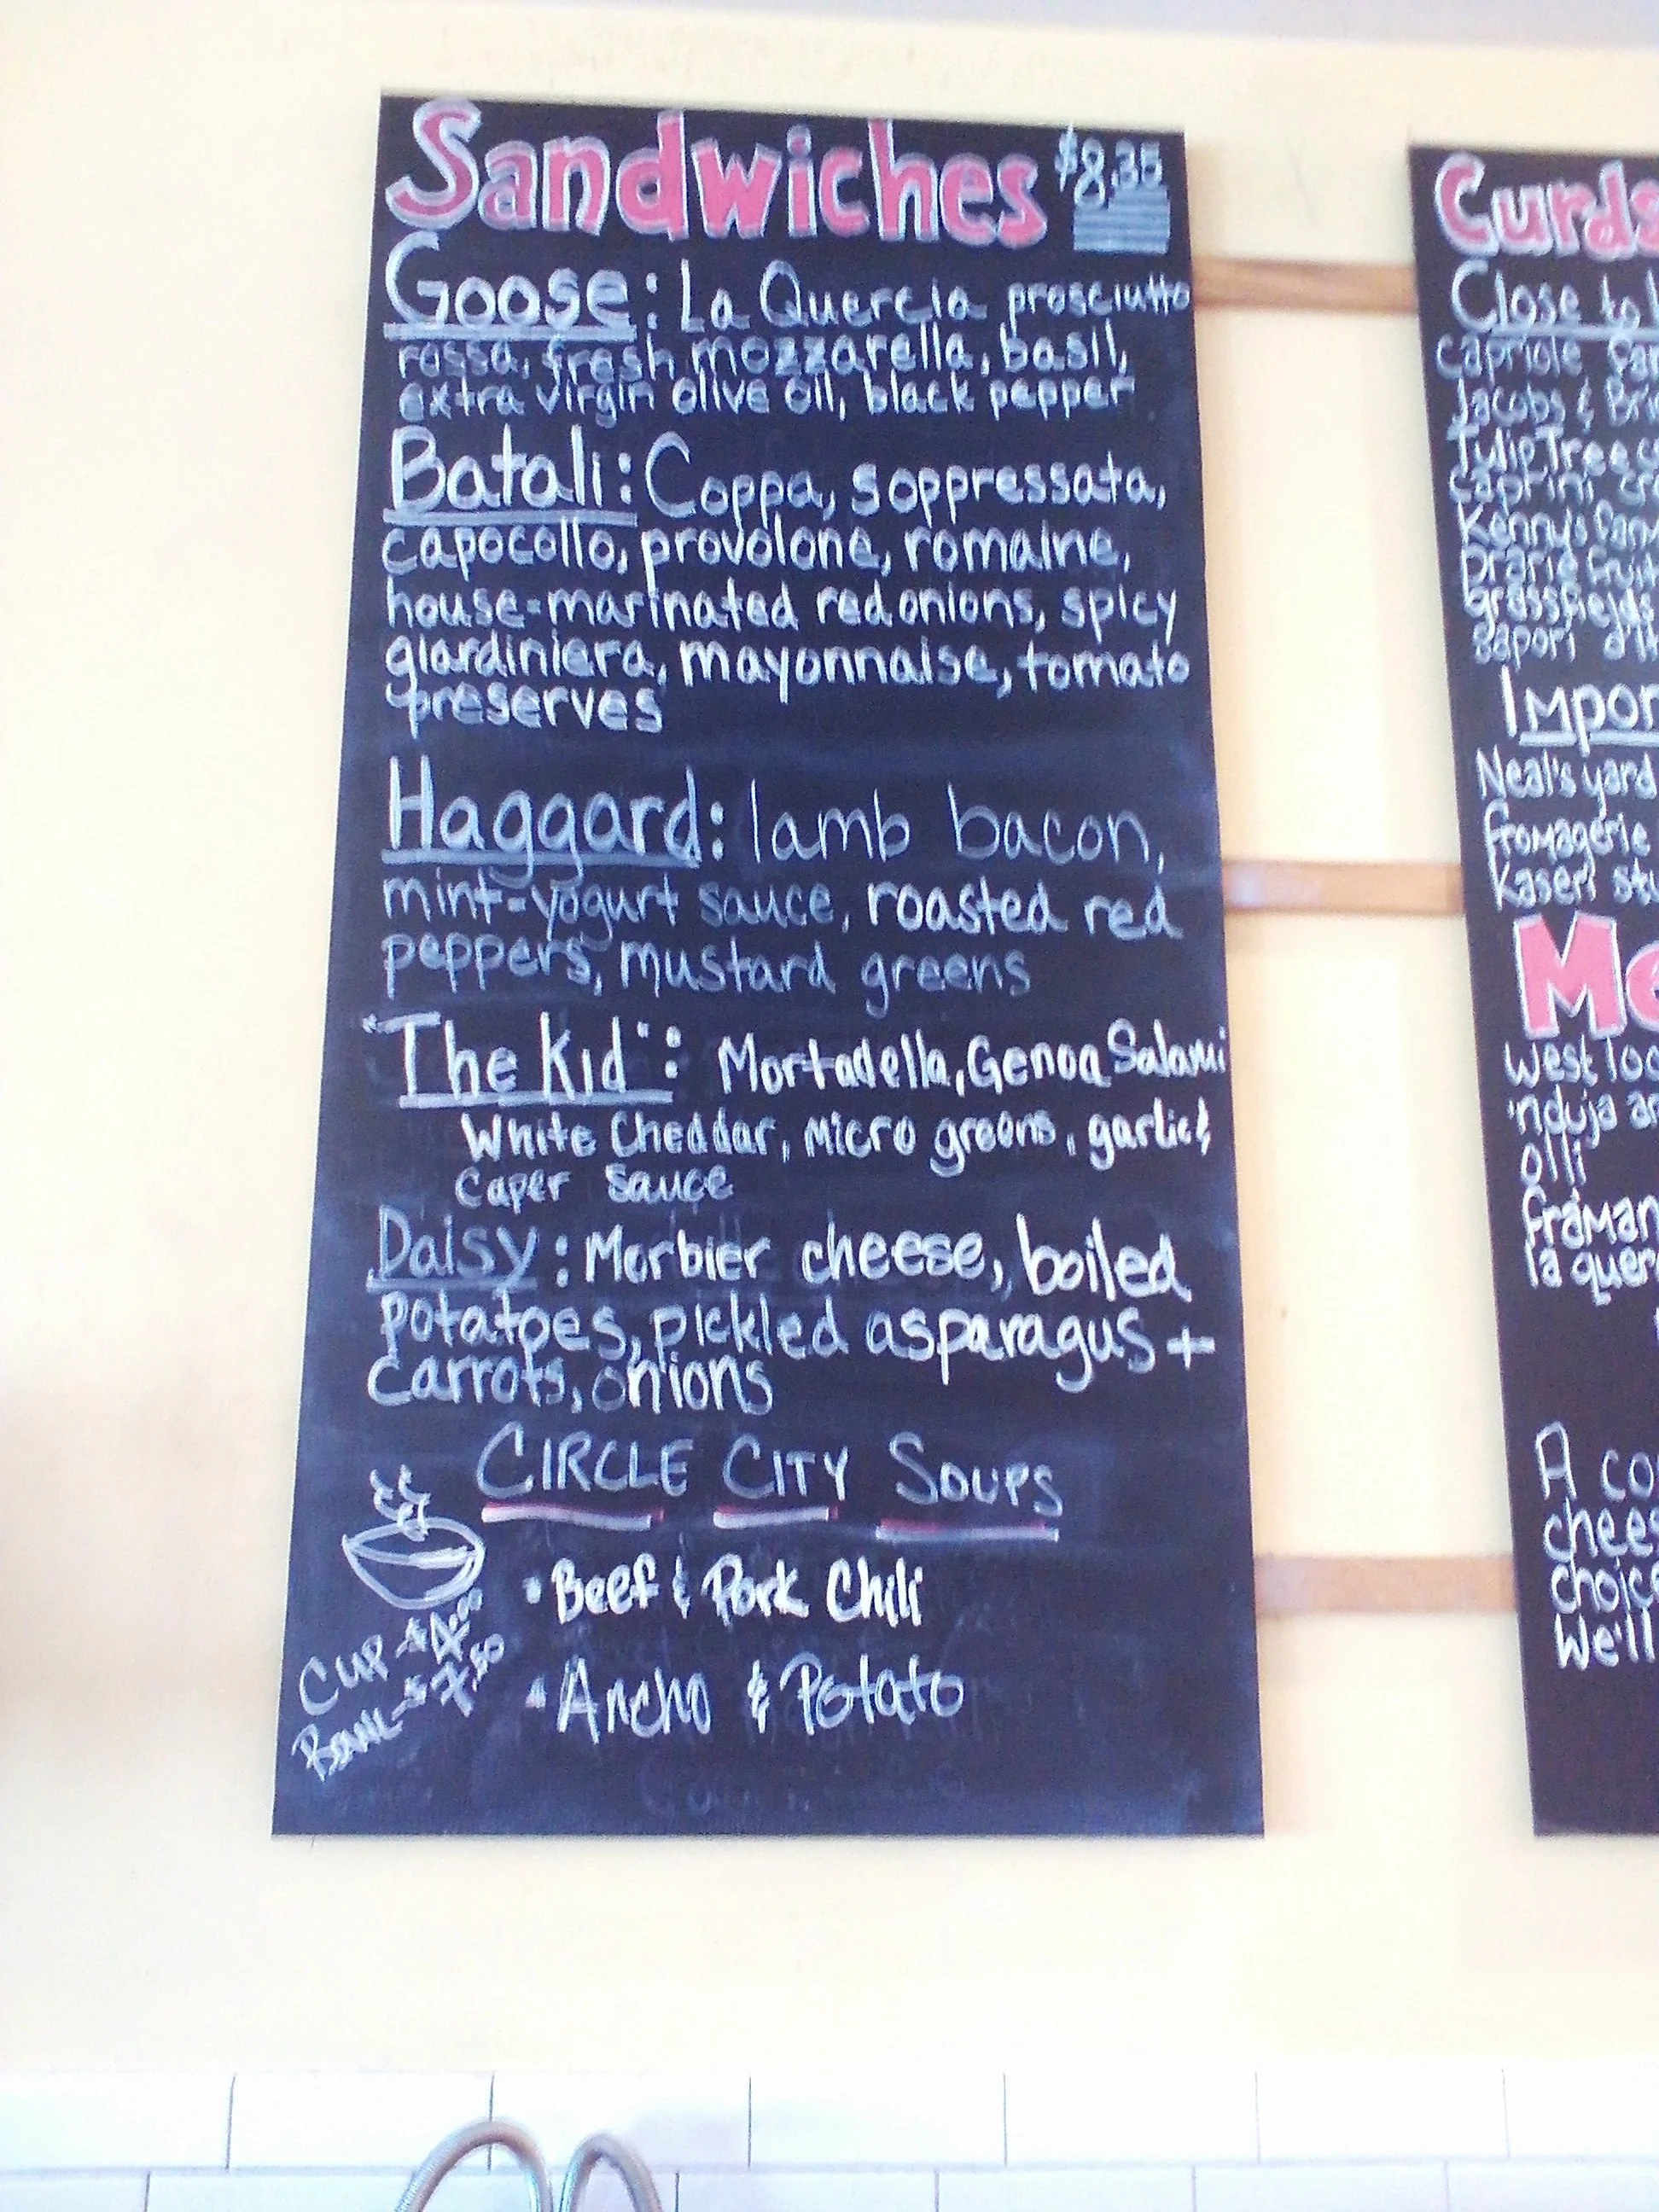 Sandwiches $8.35
Goose: La Quercia prosciutto
rossa, fresh mozzarella, basil,
extra virgin olive oil, black pepper
Batali: Coppa, soppressata,
capocollo, provolone, romaine,
house-marinated red onions, spicy
giardiniera, mayonnaise, tomato
preserves
Haggard: lamb bacon,
mint-yogurt sauce, roasted red
peppers, mustard greens
"The Kid": Mortadella, Genoa Salami
White Cheddar, Micro greens, garlic &
Caper Sauce
Daisy: Morbier cheese, boiled
potatoes, pickled asparagus +
carrots, onions
CIRCLE CITY SOUPS
• Beef & Pork Chili
• Ancho & Potato
Cup - $4.00
Bowl - $7.50
Curds
Close to
capriole
Jacobs & Bri
TulipTree
caprini, cr
Kenny's farm
prarie fruit
grassfields
sapori
Impor
Neal's yard
fromagerie
kaseri
Me
West loo
'nduja ar
olli
framan
la quer
A co
chees
choice
We'll